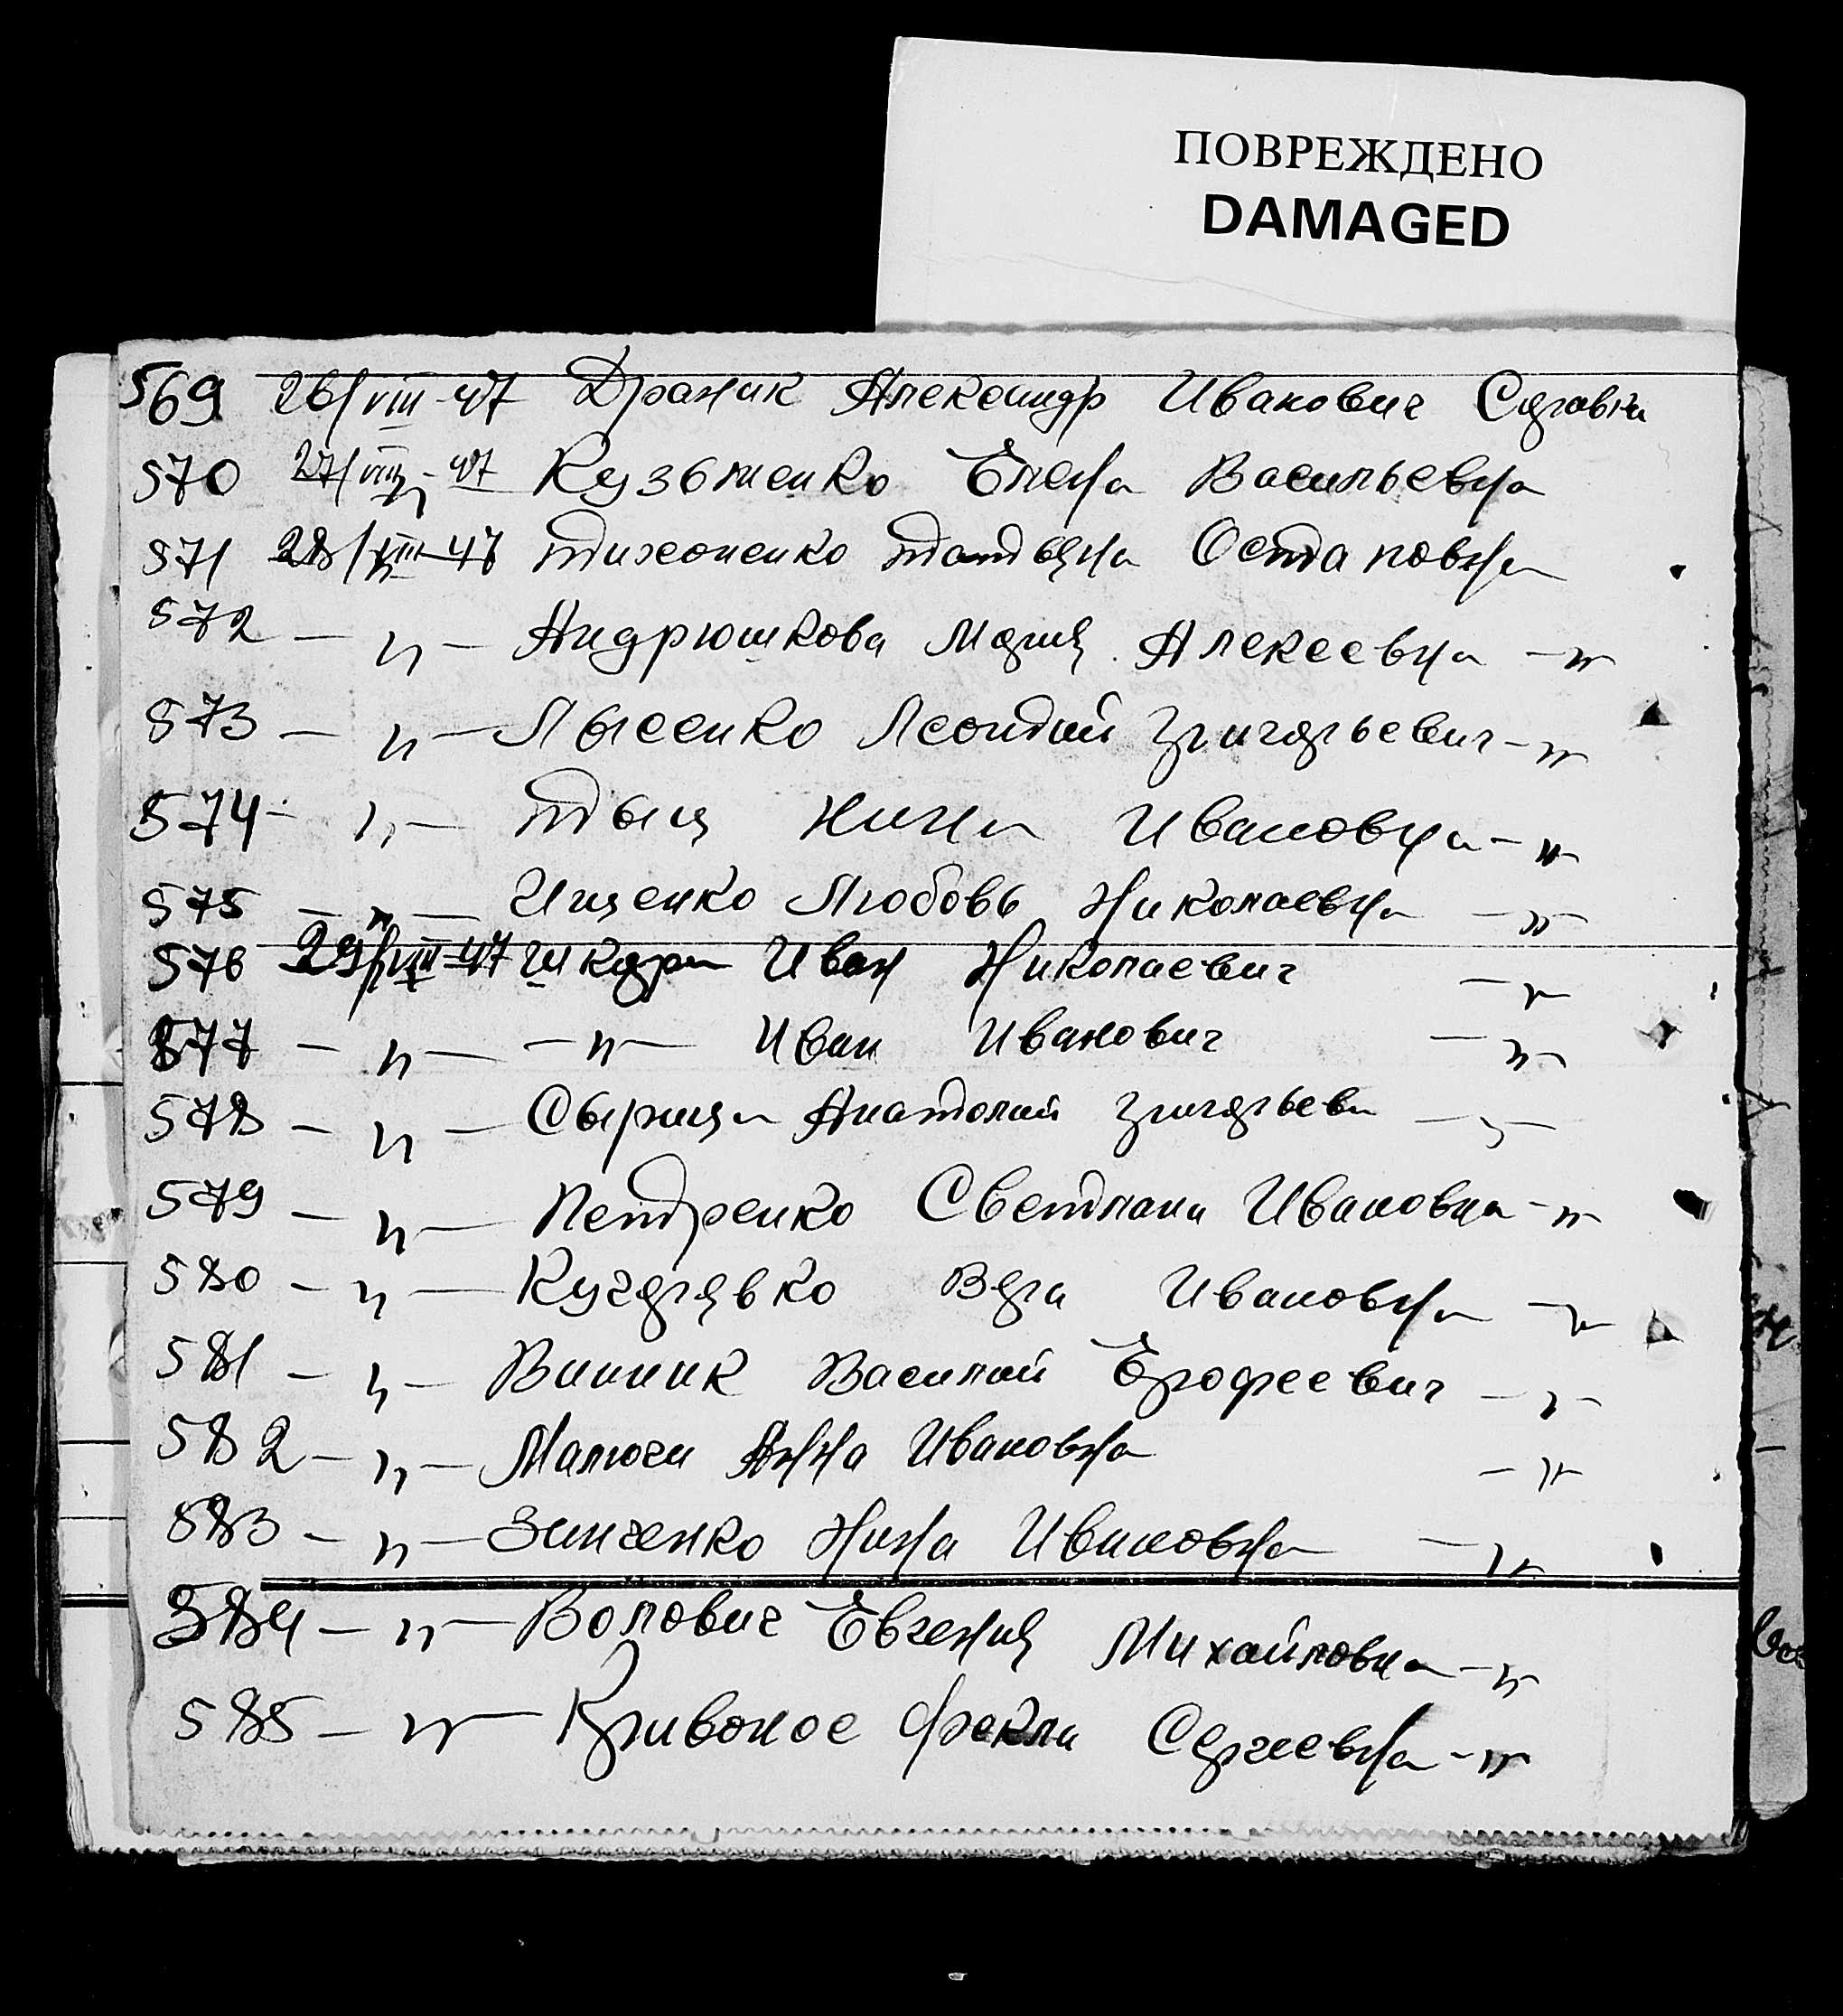 ПОВРЕЖДЕНО
DAMAGED
569 26/VIII-47 Драник Александр Иванович Справка
570 27/VIII-47 Кузьменко Елена Васильевна
571 28/VIII-47 Тихоненко Татьяна Остаповна
572 — " — Андрюшкова Мария Алексеевна — " —
573 — " — Лысенко Леонтий Григорьевич — " —
574 — " — Нина Ивановна — " —
575 — " — Ищенко Любовь Николаевна — " —
576 29/VIII-47 Шкара Иван Николаевич — " —
577 — " — — " — Иван Иванович — " —
578 — " — Сырица Анатолий Григорьеви — " —
579 — " — Петренко Светлана Ивановна — " —
580 — " — Кучерявко Вера Ивановна — " —
581 — " — Винник Василий Ерофеевич — " —
582 — " — Малюга Анна Ивановна — " —
583 — " — Зинченко Нина Ивановна — " —
584 — " — Волович Евгения Михайловна — " —
585 — " — Кривонос Фекла Сергеевна — " —